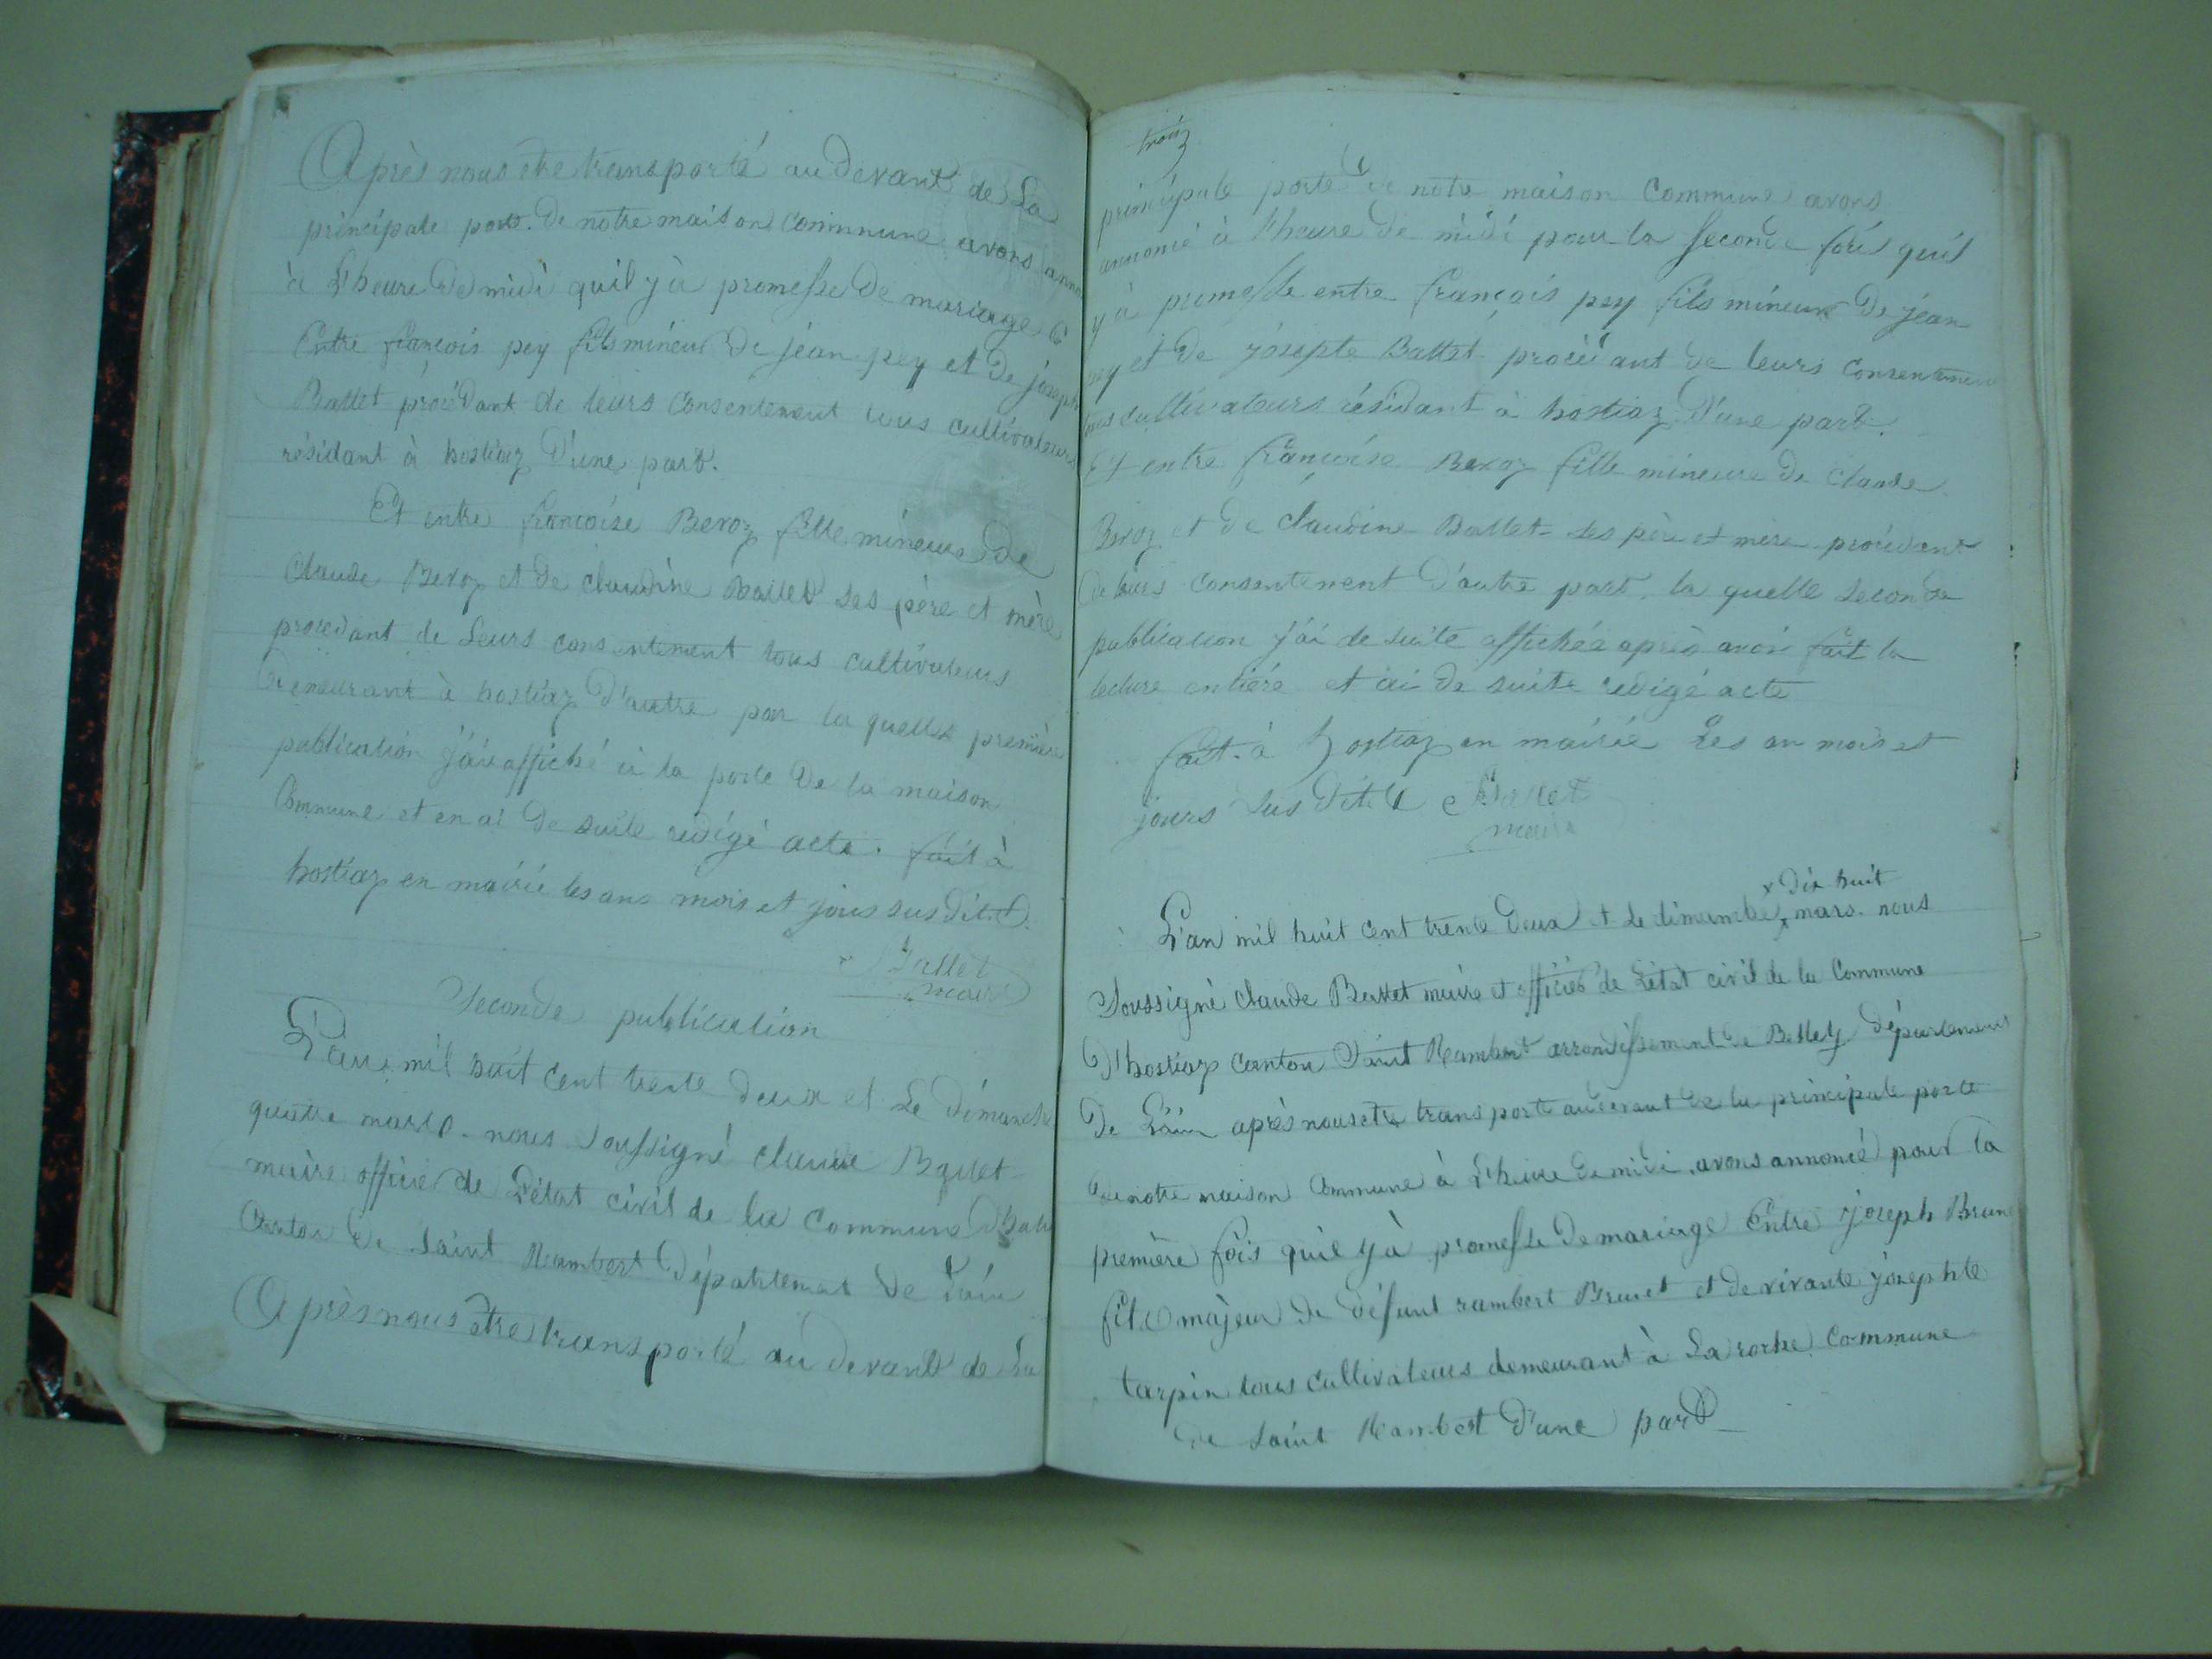 Après nous être transporté au devant de La
principale porte de notre maison Commnune avons
à L'heure de midi quil y à promesse de mariage
Entre francois pey fils mineur de jéan pey et de joseph
Ballet procédant de leurs Consentement tous cultivateurs
résidant à hostiaz D'une part.
Et entre francoise Beroz fille mineure De
Claude Beroz et de claudine Ballet ses père et mère
procedant de Leurs consentement tous cultivateurs
Demeurant à hostiaz D'autre par la quelle première
publication j'ai affiché à la porte De la maison
Commune et en ai De suite redigé acte. fait à
hostiaz en mairie les ans mois et jours susdit.
Ballet
maire
Seconde publication
L'an mil huit cent trente deux et Le dimanche
quatre mars. nous Soussigné claude Ballet
maire officier de L'état civil de la Commune
Canton De Saint Rambert Département De L'ain
Après nous être transporté au devant de La
trois
principale porte de notre maison Commune avons
annoncé à l'heure de midi pour la seconde fois quil
y à promesse entre françois pey fils mineur De jéan
pey et De josepte Ballet procédant de leurs Consentement
tous Cultivateurs résidant à hostiaz D'une part.
Et entre françoise Beroz fille mineure De Claude
Beroz et De claudine Ballet ses père et mère procédant
De leurs Consentement D'autre part. la quelle seconde
publication j'ai de suite affichée après avoir fait la
lecture entière et ai De suite redigé acte
fait à hostiaz en mairie Les an mois et
jours sus dit Ballet
maire
x dix huit
L'an mil huit cent trente Deux et Le dimanche x mars. nous
Soussigné claude Ballet maire et officier de L'état civil de la Commune
D'hostiaz canton Saint Rambert arrondissement De Belley département
De L'ain après nous etre transporté au devant De la principale porte
De notre maison Commune à L'heure De midi, avons annoncé pour la
première fois quil y à promesse De mariage Entre joseph
fils majeur De Défunt rambert Brunet et de vivante josephte
tarpin tous Cultivateurs demeurant à La roche Commune
De Saint Rambert D'une part